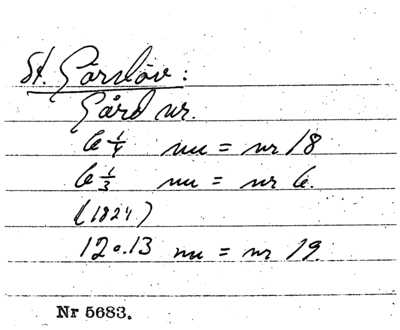 St. Görslöv:
Gård nr.
6 1/4 nu = nr 18
6 1/3 nu = nr 6.
(1824)
12 o. 13 nu = nr 19.
Nr 5683.